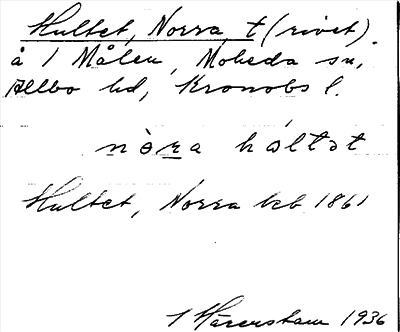 Hultet, Norra t (rivet).
å 1 Målen, Moheda sn,
Allbo hd, Kronobs l.
nòra håltət
Hultet, Norra kb 1861
1936